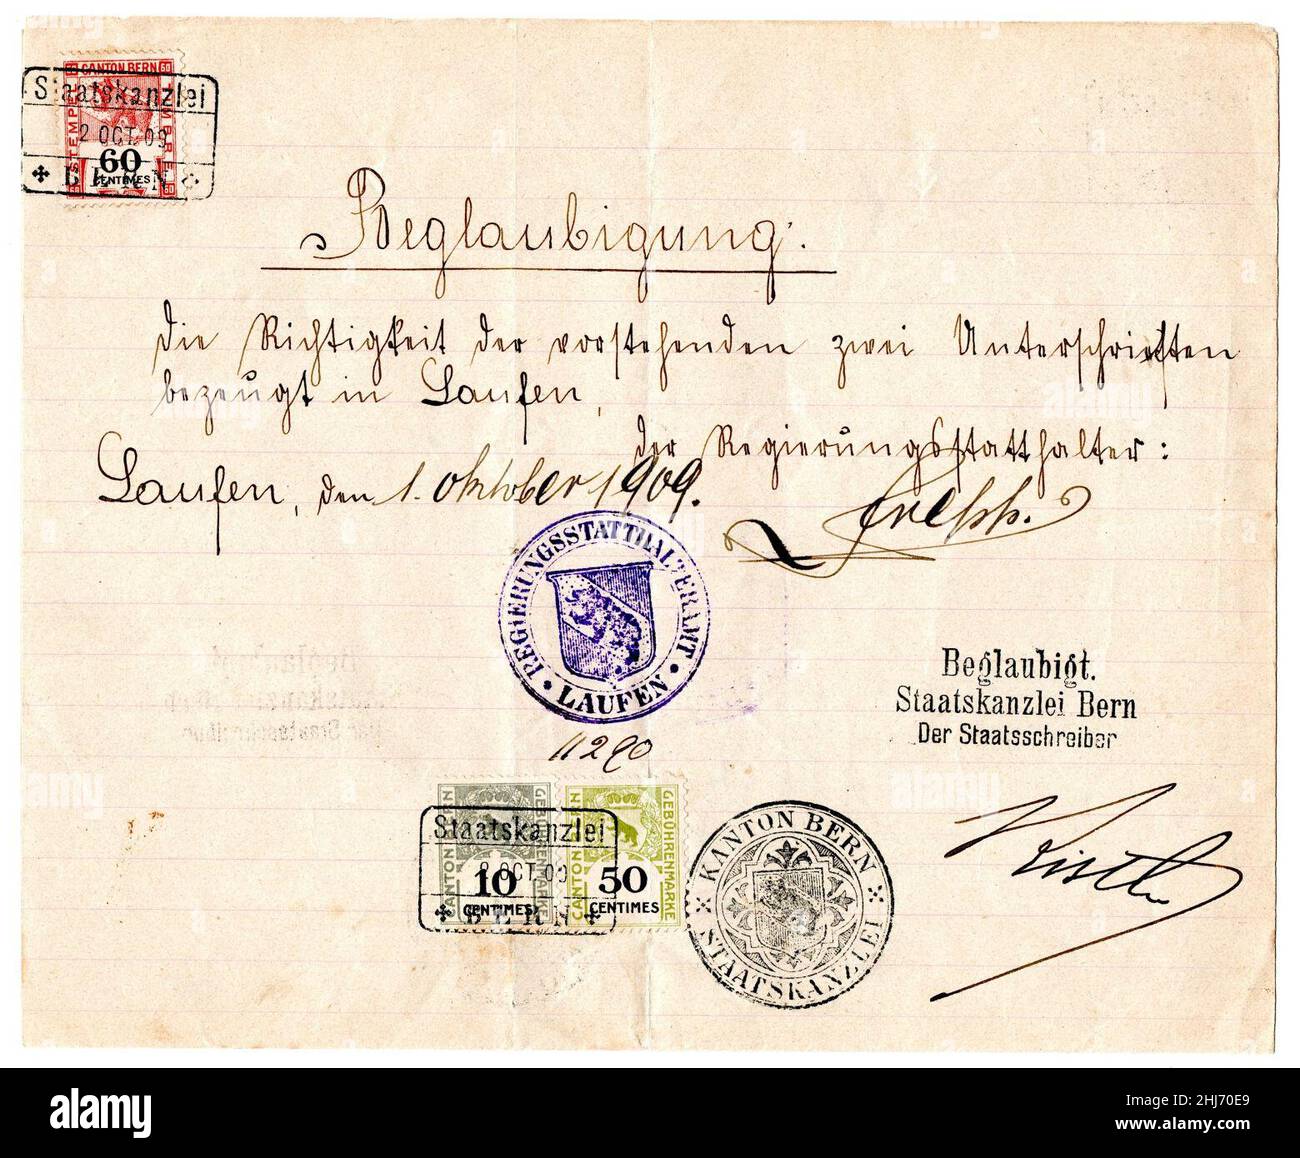 CANTON BERN
60 60
STEMPEL TIMBRE
60
CENTIMES
Staatskanzlei
2 OCT. 09
BERN
Beglaubigung:
Die Richtigkeit der vorstehenden zwei Unterschriften
bezeugt in Laufen,
der Regierungsstatthalter:
Laufen, den 1. Oktober 1909.
REGIERUNGSSTATTHALTERAMT
LAUFEN
11290
Beglaubigt.
Staatskanzlei Bern
Der Staatsschreiber
CANTON BERN
GEBÜHRENMARKE
10
CENTIMES
CANTON BERN
GEBÜHRENMARKE
50
CENTIMES
Staatskanzlei
2 OCT. 09
BERN
KANTON BERN
STAATSKANZLEI
alamy
Image ID: 2HJ70E9
www.alamy.com